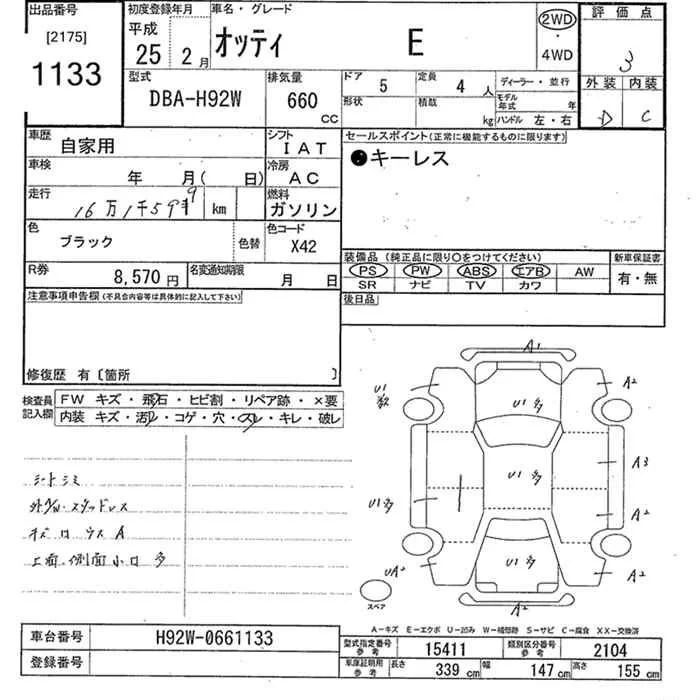 出品番号 初度登録年月 車名・グレード 2WD 評価点
[2175] 平成 オッティ E ・ 3
1133 25 2月 4WD
型式 排気量 ドア 5 定員 4 人 ディーラー・並行 外装 内装
DBA-H92W 660 cc 形状 積載 kg モデル年式 年 D C
ハンドル 左・右
車歴 自家用 シフト IAT セールスポイント(正常に機能するものに限ります)
車検 年 月( 日) 冷房 AC ●キーレス
走行 km 燃料 ガソリン
色 ブラック 色替 色コード X42
装備品(純正品に限り○をつけてください) 新車保証書
R券 8,570円 名変通知期限 月 日 PS PW ABS エアB AW 有・無
SR ナビ TV カワ
注意事項申告欄(不具合内容等は具体的に記入して下さい) 後日品
修復歴 有〔箇所 〕
検査員記入欄 FW キズ・飛石・ヒビ割・リペア跡・×要
内装 キズ・汚レ・コゲ・穴・スレ・キレ・破レ
A1
U1 A2
U1多
A3
U1多 U1多 A2
シートシミ
外AW・スタッドレス
上面、側面小口多
U1多
UA2 A2
スペア A2
A-キズ E-エクボ U-凹み W-補修跡 S-サビ C-腐食 XX-交換済
車台番号 H92W-0661133 型式指定番号 参考 15411 類別区分番号 参考 2104
登録番号 車庫証明用 参考 長さ 339 cm 幅 147 cm 高さ 155 cm